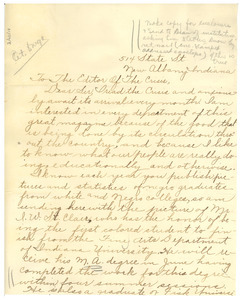 Art Dept.
574 State St
New Albany Indiana
To The Editor Of The Crisis,
Dear Sir, I read the Crisis and anxiously await its arrival every month. I am
interested in every department of this
great magazine because of the good that
is being done by its circulation thru-
out the country, and because I like
to know what our people are really do-
ing educational, and otherwise.
I know each year you publish pic-
tures and statistics of negro graduates
from white and Negro Colleges, so am
sending herewith the picture of Mr
N.W. St. Clair, who has the honor of be-
ing the first colored student to fin-
ish from the Fine Arts Department
of Indiana University. He will re-
ceive his M.A. degree in June, having
completed the work for this degree
within four summer sessions.
He is also a graduate of Fisk Univer-